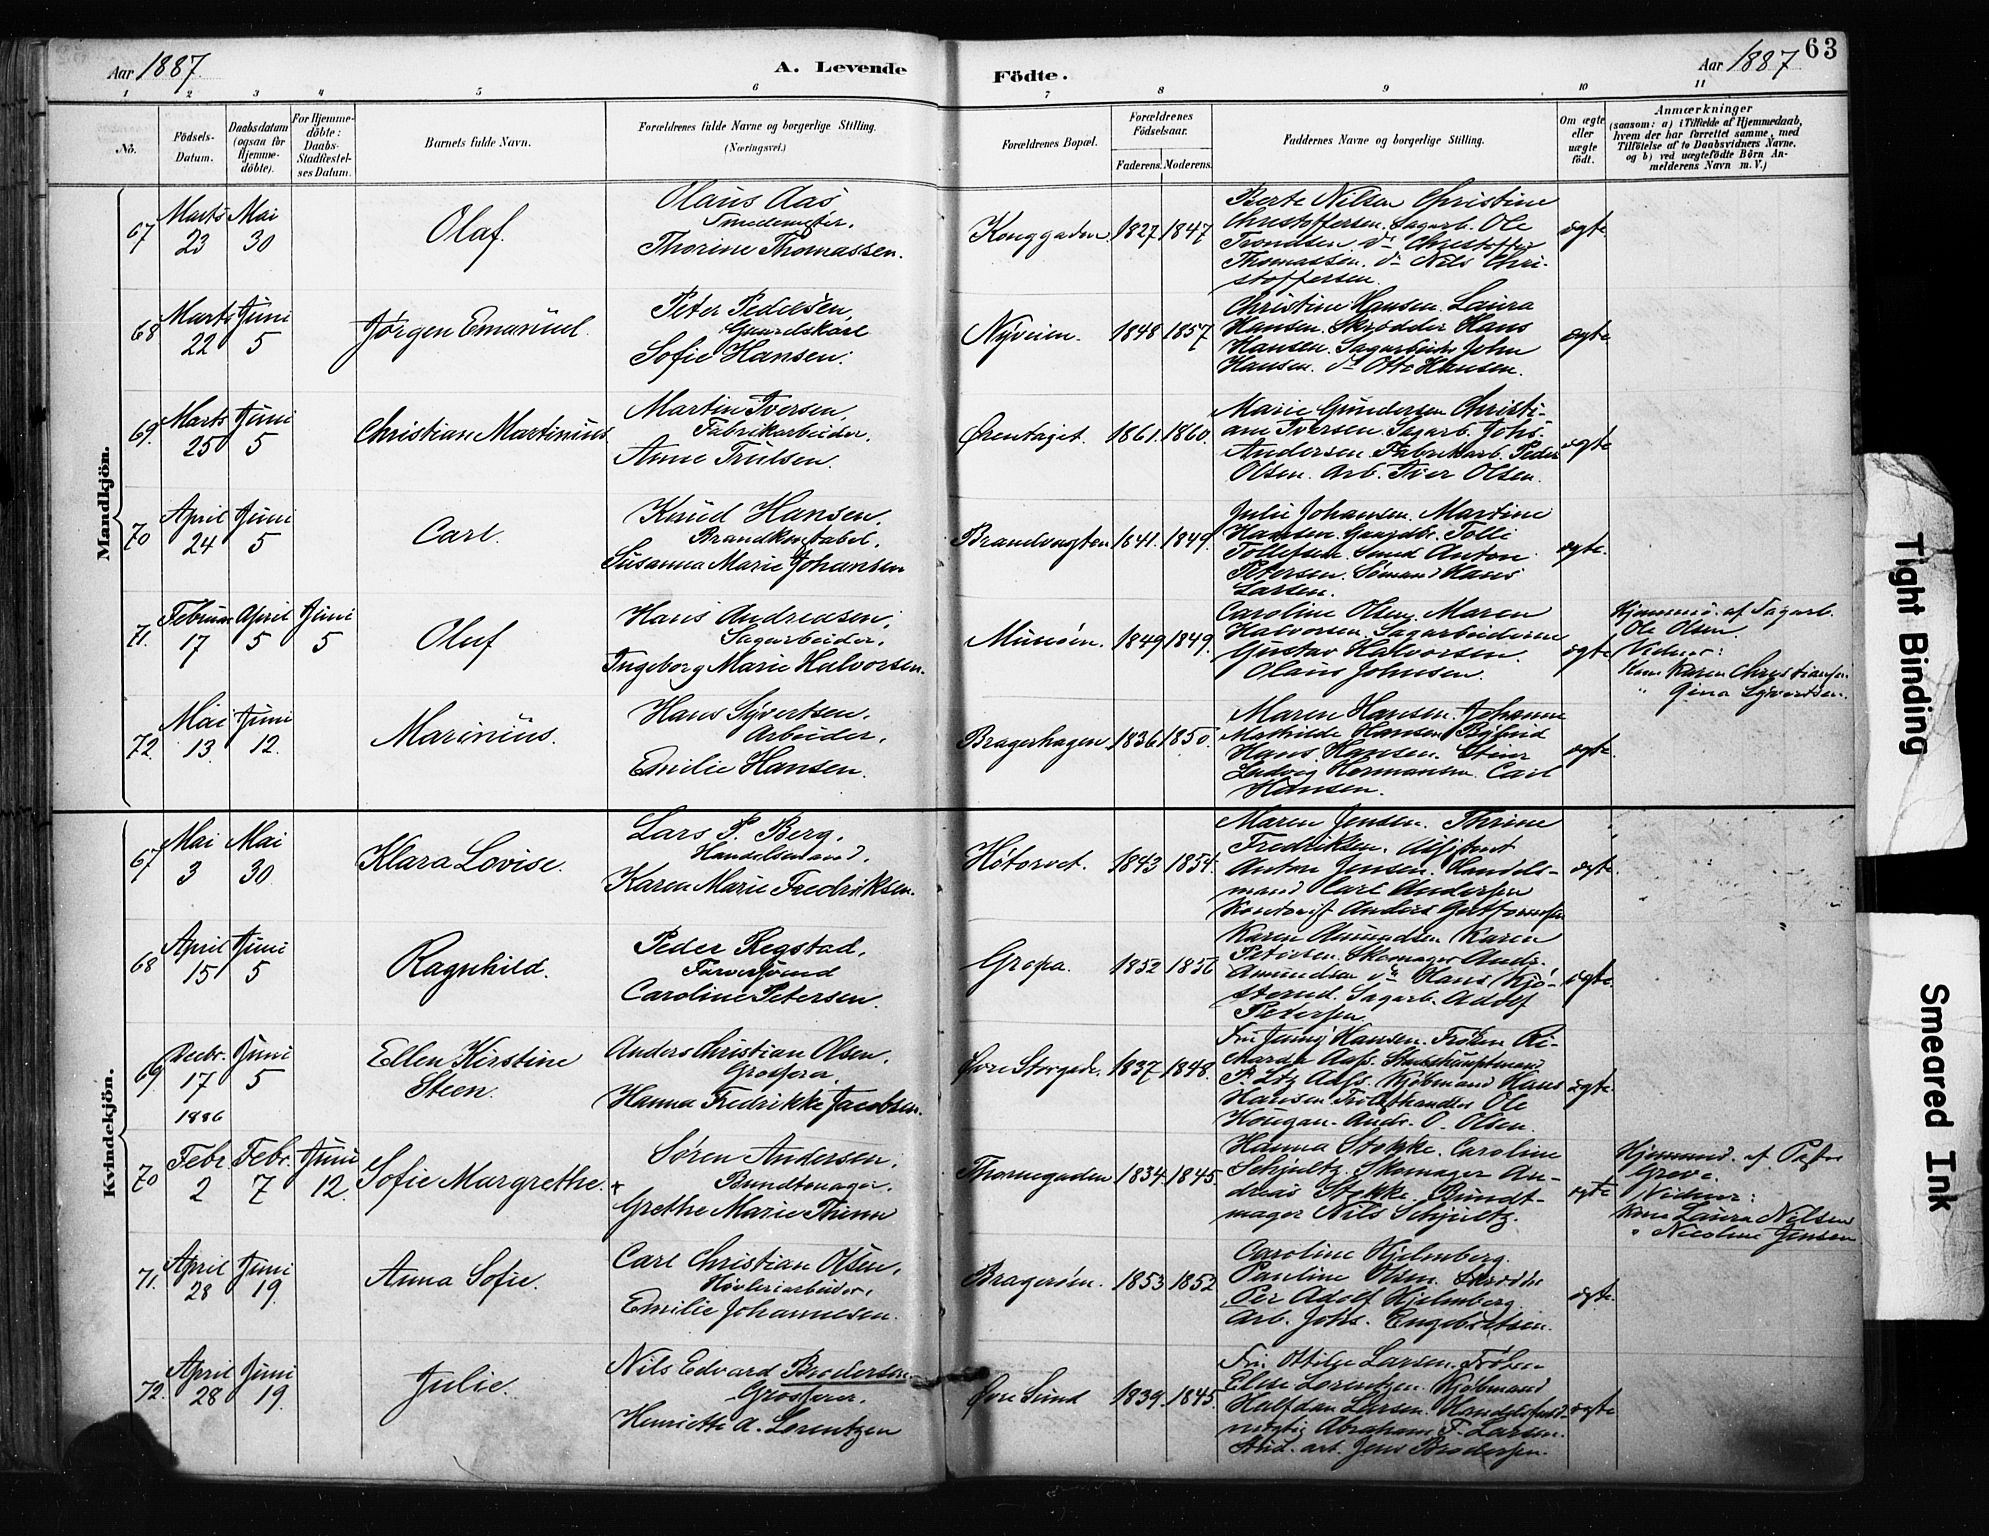 Aar 1887.
A. Levende Födte.
Aar 1887
63
1 2 3 4 5 6 7 8 9 10 11
No.
Födsels-Datum.
Daabsdatum (ogsaa for Hjemme-döbte).
For Hjemme-döbte: Daabs-Stadfæstel-ses Datum.
Barnets fulde Navn.
Forældrenes fulde Navne og borgerlige Stilling. (Næringsvei.)
Forældrenes Bopæl.
Forældrenes Födselsaar.
Faderens. Moderens.
Faddernes Navne og borgerlige Stilling.
Om ægte eller uægte födt.
Anmærkninger
(saasom: a) i Tilfælde af Hjemmedaab,
hvem der har forrettet samme, med
Tilföielse af to Daabsvidners Navne,
og b) ved uægtefödte Börn An-
melderens Navn m. V.)
Mandkjön.
67 Marts 23 Mai 30
Olaf.
Olaus Aas
Smedemester.
Thorine Thomassen.
Konggaden 1827. 1847
Berte Nilsen Christine
Christoffersen. Sagarb. Ole
Trondsen do Christoffer
Thomassen. do Nils Chri-
stoffersen.
ægte
68 Marts 22 Juni 5
Jørgen Emanuel.
Peter Pedersen,
Gaardskarl
Sofie Hansen.
Nyveien. 1848 1857
Christine Hansen. Laura
Hansen. Skrædder Hans
Hansen. Sagarbeider John
Hansen. do Otto Hansen.
ægte
69. Marts 25 Juni 5
Christian Martinius
Martin Iversen,
Fabrikarbeider.
Anne Trulsen.
Ørentaget. 1861. 1860.
Marie Gundersen Christi-
ane Iversen. Sagarb. Johs.
Andersen. Fabrikarb. Peder
Olsen. Arb. Iver Olsen.
ægte
70 April 24 Juni 5
Carl.
Knud Hansen,
Brandkonstabel.
Susanna Marie Johansen
Brandvagten 1841. 1849.
Julie Johansen. Martine
Hansen. Tolli
Tollefsen. Smed Anton
Petersen. Sømand Hans
Larsen.
ægte.
71. Februar 17 April 5 Juni 5
Oluf
Hans Andreasen,
Sagarbeider.
Ingeborg Marie Halvorsen.
Museøen. 1849 1849.
Caroline Olsen. Maren
Halvorsen. Sagarbeiderne
Gustav Halvorsen.
Olaus Johnsen.
ægte
Hjemmed. af Sagarb.
Ole Olsen.
Vidner:
Kone Karen Christiansen
" Gina Syvertsen.
72 Mai 13. Juni 12.
Marinius.
Hans Syvertsen,
Arbeider.
Emilie Hansen.
Bragerhagen 1836. 1850.
Maren Hansen. Johanne
Mathilde Hansen. Bybud
Hans Hansen.
Ludvig Hermansen. Carl
Hansen.
ægte.
Kvindekjön.
67 Mai 3 Mai 30
Klara Lovise.
Lars P. Berg.
Handelsmand.
Karen Marie Fredriksen.
Høtorvet. 1843 1854.
Maren Jensen. Thrine
Fredriksen.
Anton Jensen. Handels-
mand Carl Andersen
Kontorist Anders
ægte.
68 April 15 Juni 5
Ragnhild.
Peder Regstad,
Farversvend
Caroline Petersen.
Gropa. 1852 1856
Karen Amundsen Karen
Petersen. Skomager Andr.
Amundsen do Hans Kjø-
sterud. Sagarb. Adolf
Petersen.
ægte.
69 Decbr. 17 1886 Juni 5
Ellen Kirstine
Steen.
Anders Christian Olsen,
Grosserer,
Hanna Fredrikke Jacobsen.
Øvre Storgade. 1837. 1848.
Fru Jenny Hansen. Frøken Ri-
charda Aass. Stadshauptmand
P. Ltz. Aass. Kjøbmand Hans
Hansen Trælasthandler Ole
Haugan. Andr. O. Olsen.
ægte
70 Febr. 2 Febr. 7 Juni 12.
Sofie Margrethe.
Søren Andersen,
Bundtmager.
Grethe Marie Thune
Thornegaden 1834. 1845.
Hanna Stokke. Caroline
Schjultz. Skomager An-
dreas Stokke. Bundt-
mager Nils Schjultz.
ægte
Hjemmed. af Pastor
Greve.
Vidner:
Kone Laura Nilsen
" Nicoline Jensen
71. April 28 Juni 19.
Anna Sofie.
Carl Christian Olsen,
Høvleriarbeider,
Emilie Johannesen.
Bragerøen. 1853 1852
Caroline Hjelmberg.
Pauline Olsen. Skrædder
Per Adolf Hjelmberg.
Arb. Johs. Engebretsen.
ægte.
72. April 28 Juni 19.
Julie.
Nils Edvard Brodersen
Grosserer.
Henriette A. Lorentzen
Øvre Sund 1839. 1845.
Fru Ottilie Larsen. Frøken
Elise Lorentzen. Kjøbmand
Halfdan Larsen. Handelsfuld-
mægtig Abraham F. Larsen.
Stud. art. Jens Brodersen.
ægte
Tight Binding
Smeared Ink